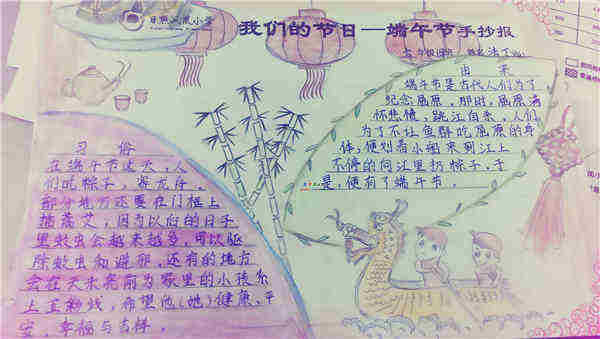 日照凤凰小学
我们的节日—端午节手抄报
由来
端午节是古代人们为了
纪念屈原,那时,屈原满
怀悲愤,跳江自杀,人们
为了不让鱼虾吃屈原的身
体,便划着小船来到江上
不停的向江里扔粽子,于
是,便有了端午节。
习俗
在端午节这天,人
们吃粽子,赛龙舟。
部分地方还要在门框上
插蒿艾,因为以后的日子
里蚊虫会越来越多,可以驱
除蚊虫和避邪,还有的地方
会在天未亮前为家里的小孩系
上五彩线,希望他(她)健康、平
安、幸福与吉祥。